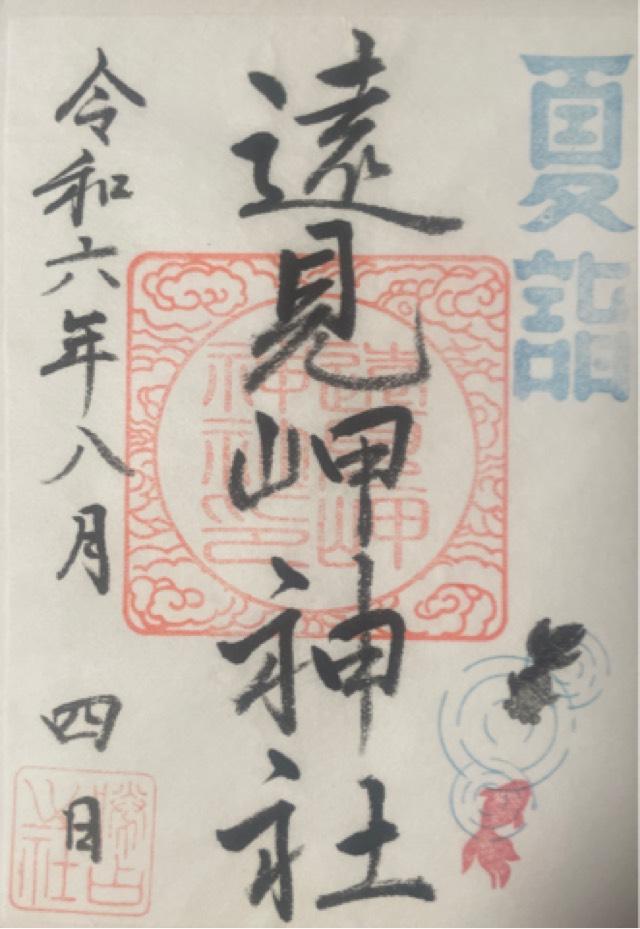 夏詣
遠見岬神社
令和六年八月四日
遠見岬
神社印